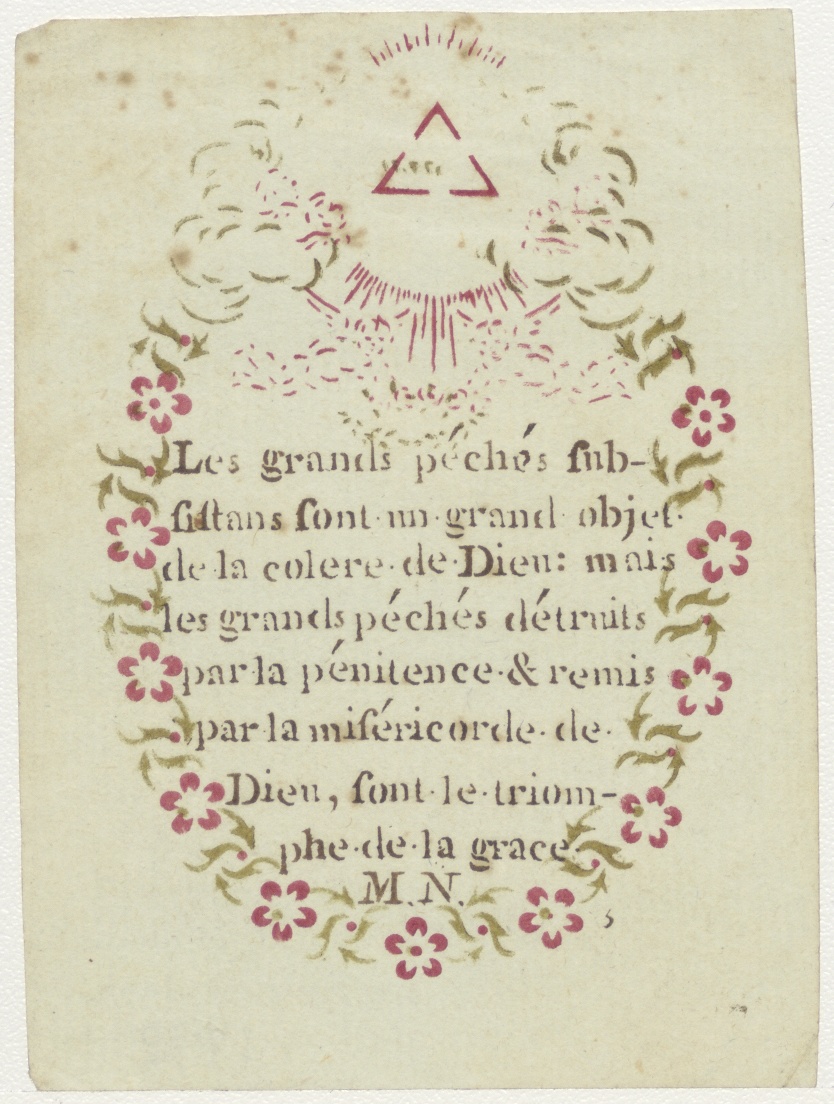 Les grands péchés ſub-
ſiſtans ſont un grand objet
de la colere de Dieu: mais
les grands péchés détruits
par la pénitence & remis
par la miſéricorde de
Dieu, ſont le triom-
phe de la grace.
M. N.